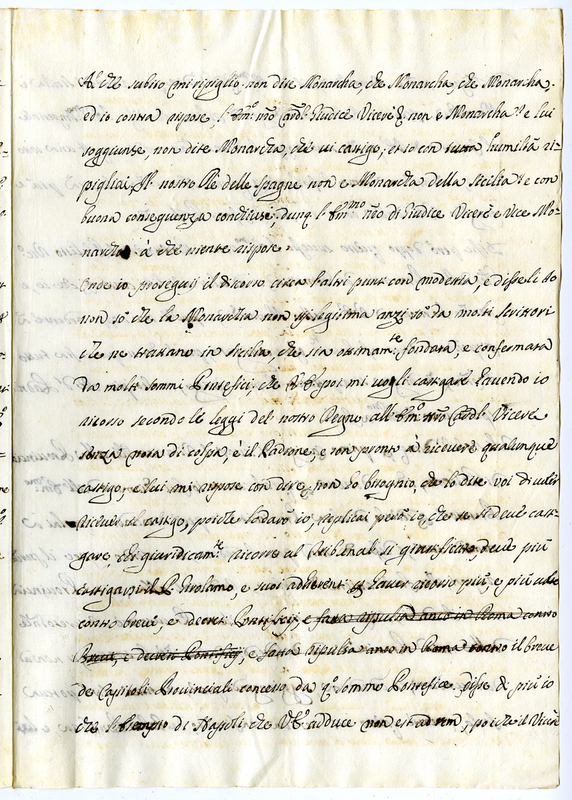 Al che subito mi ripigliò, non dite Monarcha, che Monarcha, che Monarcha.
ed io contra rispose, l' Em.mo nro Card.l Giudice Vicerè non è Monarcha? e lui
soggiunse, non dite Monarcha, che vi castigo; et io con tutta humiltà ri-
pigliai, Il nostro Rè delle Spagne non è Monarcha della Sicilia? e con
buona conseguenza conchiusi, dunq. l' Em.mo nro di Giudice Vicerè è Vice Mo-
narcha à che niente rispose.
Onde io proseguij il discorso circa l'altri punti con modestia, e disseli Io
non so che la Monarchia non sij legitima anzi so da molti scrittori
che ne trattano in Sicilia, che sia ottimam.te fondata, e confermata
da molti sommi Pontefici, che poi mi vogli castigare havendo io
ricorso secondo le leggi del nostro Regno all' Em.mo nro Card.l Vicerè
senza nota di colpa, è il Padrone, e son pronto à ricevere qualunque
castigo, e lui mi rispose con dire, non ho bisognio, che lo dite voi di voler
ricever il castigo, poiche lo darò io, replicai però io, che se si deve casti-
gare, chi giuridicam.te ricorre al Tribunal si deve più
castigar il P. Girolamo, e suoi adherenti haver ricorso più, e più volte
contro brevi, e decreti Pontificij, e fatta repulsa anco in Roma contro
Brevi, e decreti Pontificij, e fatta repulsa anco in Roma contro il breve
de Capitoli Provinciali concesso da q.o sommo Pontefice. Disse di più io
che l' esempio di Napoli che adduce non est ad rem, poiche il Vicerè